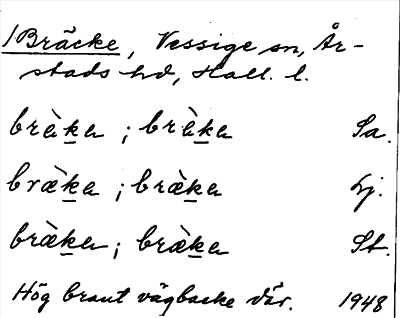 /Bräcke, Vessige sn, År-
stads hd, Hall. l.
brὲ̀ka ; brὲ̀ka Sa.
bræ̀ka ; bræ̀ka Lj.
bræ̀ka ; bræ̀ka St.
Hög brant vägbacke där. 1948